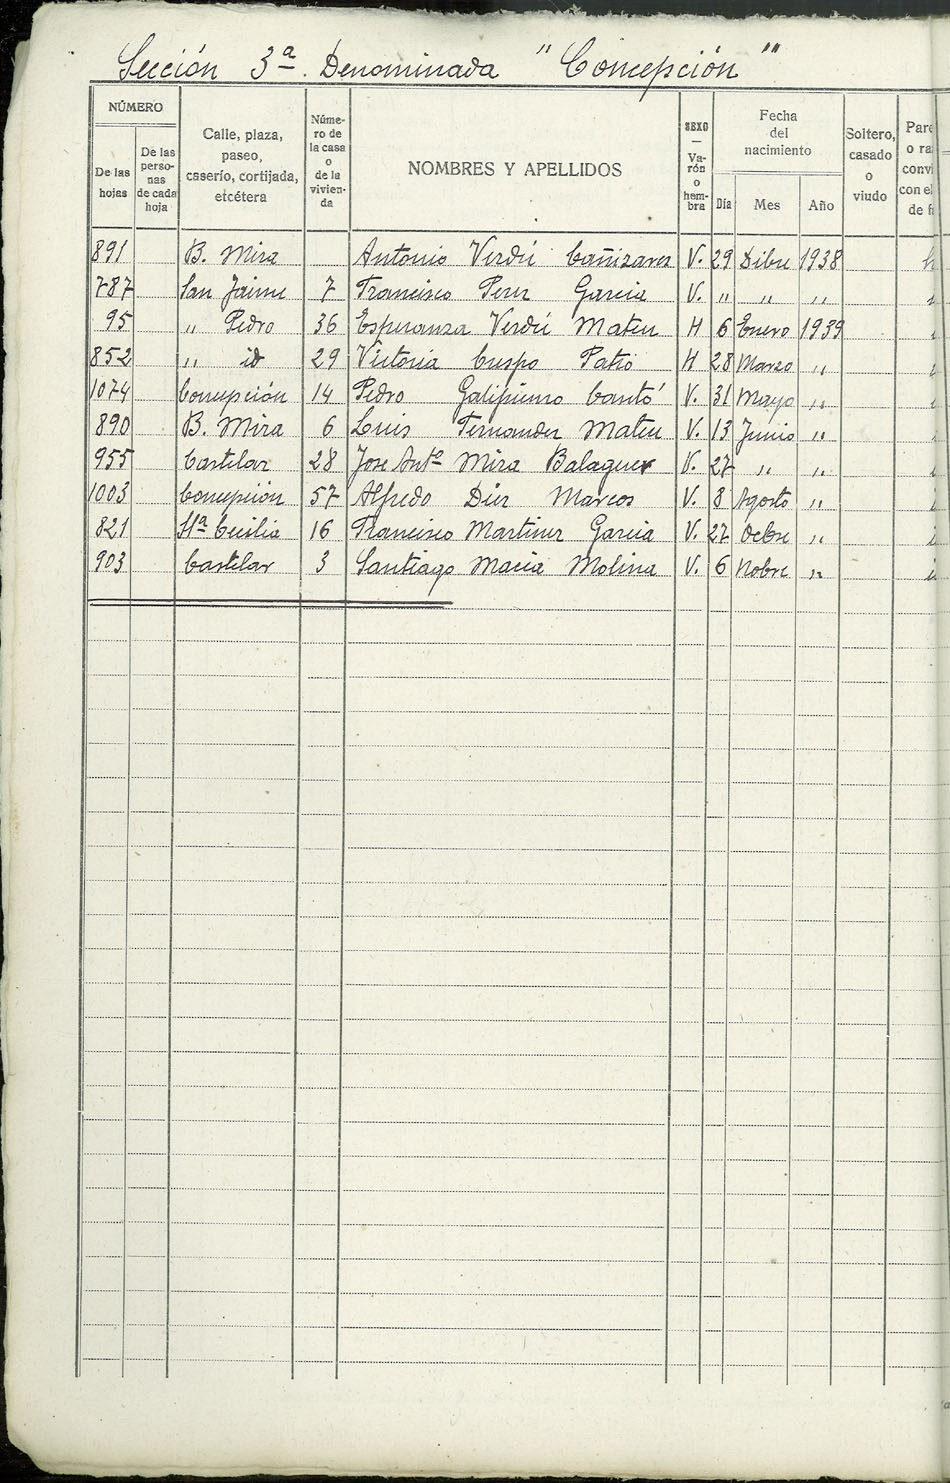 Sección 3ª. Denominada "Concepción"
NÚMERO
De las hojas
De las perso-nas de cada hoja
Calle, plaza, paseo, caserío, cortijada, etcétera
Núme-ro de la casa o de la vivien-da
NOMBRES Y APELLIDOS
SEXO — Va-rón o hem-bra
Fecha del nacimiento
Día Mes Año
Soltero, casado o viudo
Pare
o ra
convi
con el
de f
891 B. Mira Antonio Verdú Cañizares V. 29 Dibre 1938 h
787 San Jaime 7 Francisco Perez Garcia V. " " "
95 " Pedro 36 Esperanza Verdú Mateu H 6 Enero 1939
852 " id 29 Victoria Crespo Patio H 28 Marzo "
1074 Concepción 14 Pedro Galipienso Cantó V. 31 Mayo "
890 B. Mira 6 Luis Fernandez Mateu V. 13 Junio "
955 Castelar 28 Jose Antº Mira Balaguer V. 27 " "
1003 Concepción 57 Alfredo Diez Marcos V. 8 Agosto "
821 Stª Cecilia 16 Francisco Martinez Garcia V. 27 Octbre "
903 Castelar 3 Santiago Maciá Molina V. 6 Nobre "